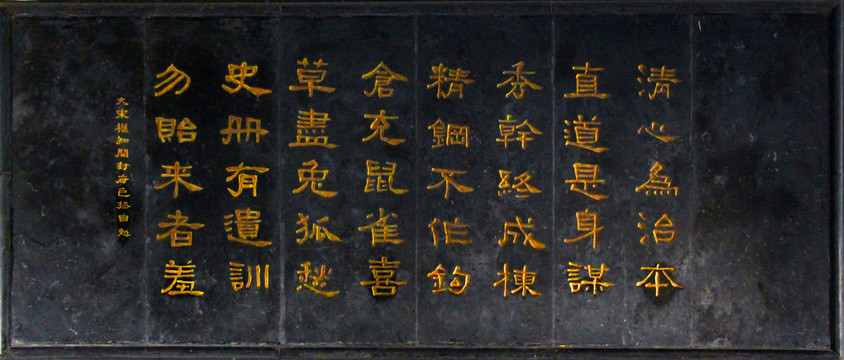 清心為治本
直道是身謀
秀幹終成棟
精鋼不作鈎
倉充鼠雀喜
草盡兔狐愁
史冊有遺訓
勿貽来者羞
大宋權知開封府包拯自勉